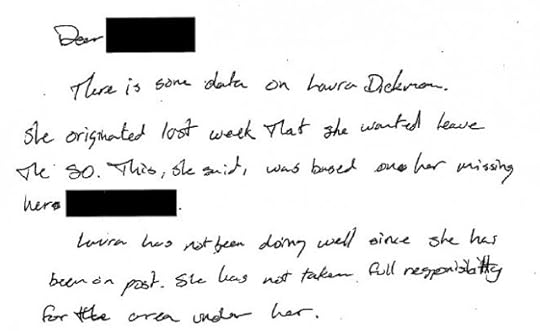 Dear
There is some data on Laura Dickman.
She originated last week that she wanted leave
the SO. This, she said, was based one her missing
here
Laura has not been doing well since she has
been on post. She has not taken full responsibility
for the area under her.